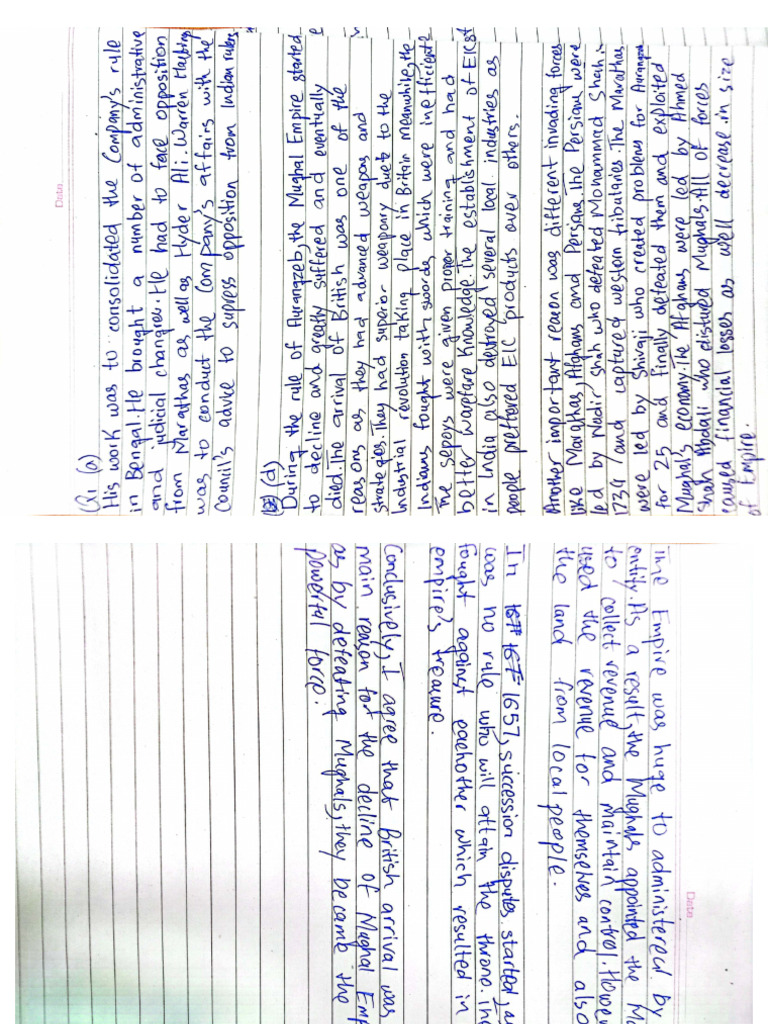 Date
Q1 (a)
His work was to consolidated the Company's rule
in Bengal. He brought a number of administrative
and judicial changes. He had to face opposition
from Marathas as well as Hyder Ali. Warren Hastings
was to conduct the Company's affairs with the
Council's advice to supress opposition from Indian rulers.
(d)
During the rule of Aurangzeb, the Mughal Empire started
to decline and greatly suffered and eventually
died. The arrival of British was one of the
reasons as they had advanced weapons and
strateges. They had superior weaponry due to the
Industrial revolution taking place in Britain Meanwhile, the
Indians fought with swords which were inefficient.
The sepoys were given proper training and had
better warfare knowledge. The establishment of EIC
in India also destroyed several local industries as
people preffered EIC products over others.
Another important reason was different invading forces
like Marathas, Afghans and Persians. The Persians were
led by Nadir Shah who defeated Mohammad Shah in
1734 and captured western tributaries. The Marathas
were led by Shivaji who created problems for Aurangzeb
for 25 and finally defeated them and exploited
Mughal's economy. The Afghans were led by Ahmed
Shah Abdali who distured Mughals. All of forces
caused financial losses as well decrease in size
of Empire.
Date
The Empire was huge to administered by
entity. As a result, the Mughals appointed the
to collect revenue and maintain control.
used the revenue for themselves and also
the land from local people.
In 1657, succession disputes started,
was no rule who will attain the throne.
fought against eachother which resulted in
empire's treasure.
Conclusively, I agree that British arrival was
main reason for the decline of Mughal
as by defeating Mughals, they became the
powerful force.